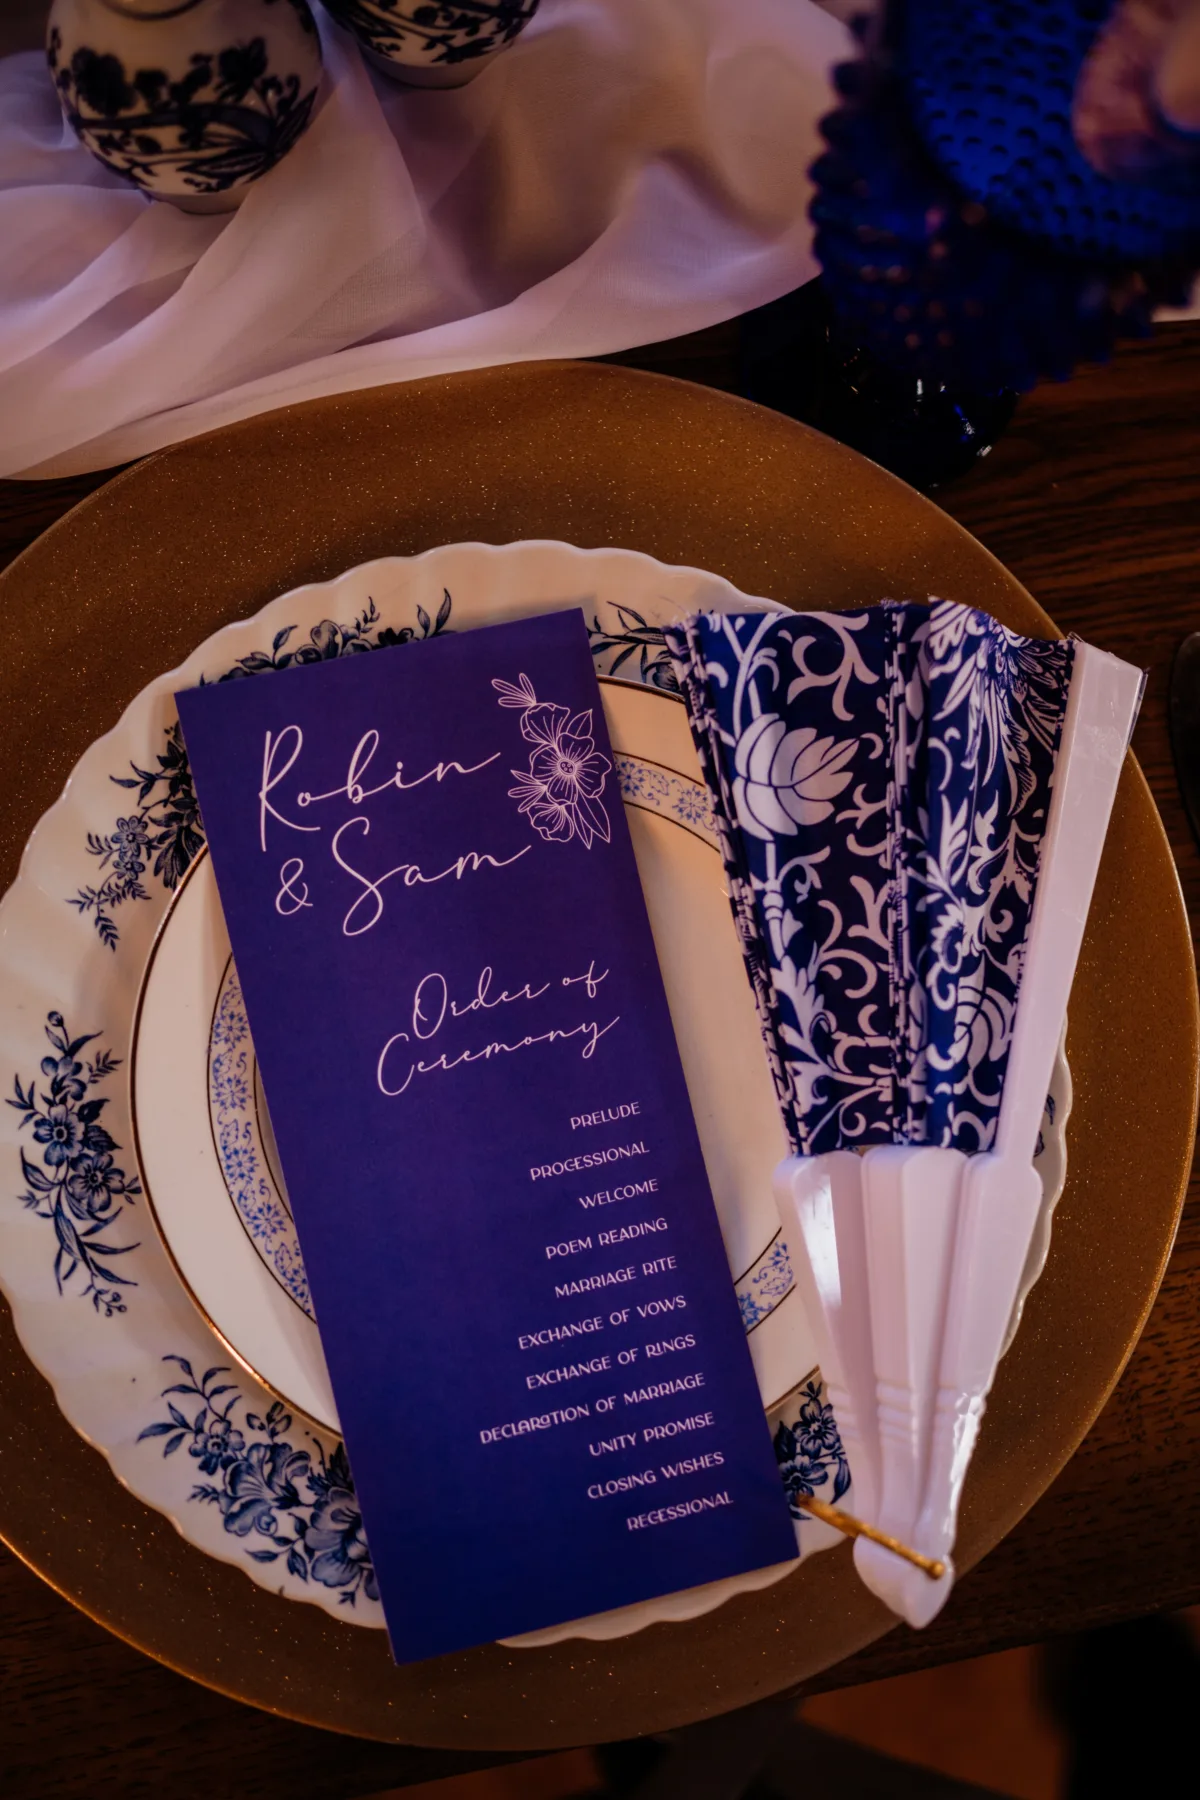 Robin
& Sam
Order of
Ceremony
PRELUDE
PROCESSIONAL
WELCOME
POEM READING
MARRIAGE RITE
EXCHANGE OF VOWS
EXCHANGE OF RINGS
DECLARATION OF MARRIAGE
UNITY PROMISE
CLOSING WISHES
RECESSIONAL